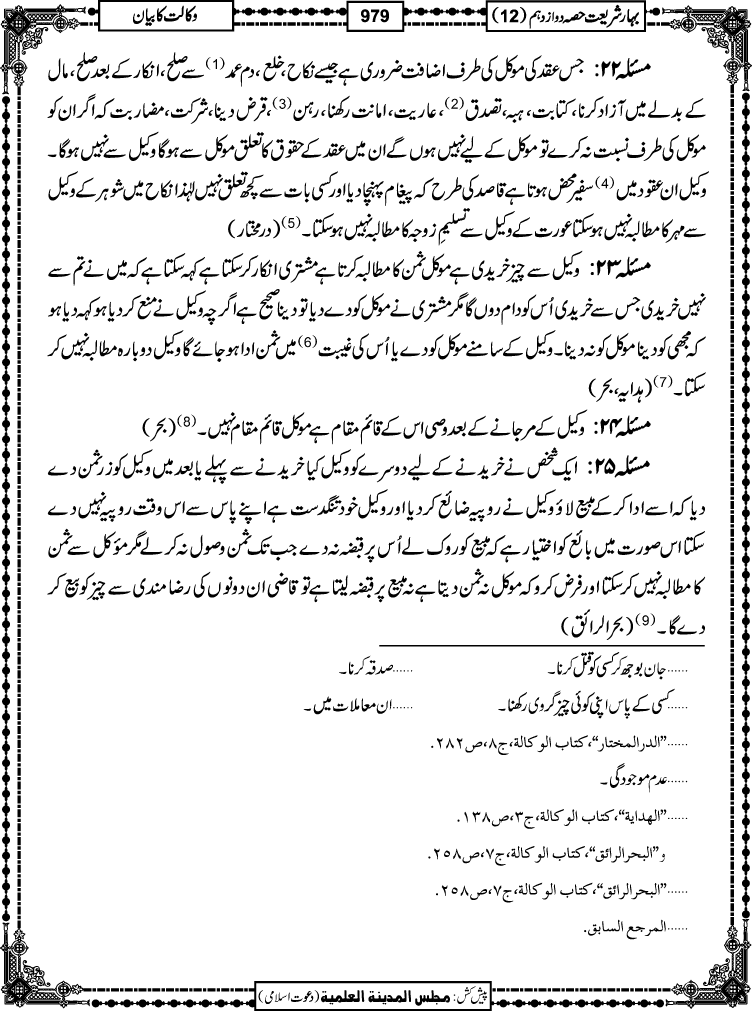 بہار شریعت حصہ دوازدہم (12)
979
وکالت کا بیان
مسئلہ ۲۲: جس عقد کی موکل کی طرف اضافت ضروری ہے جیسے نکاح، خلع، دم عمد(1) سے صلح، انکار کے بعد صلح، مال
کے بدلے میں آزاد کرنا، کتابت، ہبہ، تصدق(2)، عاریت، امانت رکھنا، رہن(3)، قرض دینا، شرکت، مضاربت کہ اگر ان کو
موکل کی طرف نسبت نہ کرے تو موکل کے لیے نہیں ہوں گے ان میں عقد کے حقوق کا تعلق موکل سے ہوگا وکیل سے نہیں ہوگا۔
وکیل ان عقود میں(4) سفیر محض ہوتا ہے قاصد کی طرح کہ پیغام پہنچا دیا اور کسی بات سے کچھ تعلق نہیں لہٰذا نکاح میں شوہر کے وکیل
سے مہر کا مطالبہ نہیں ہوسکتا عورت کے وکیل سے تسلیمِ زوجہ کا مطالبہ نہیں ہوسکتا۔(5) (درمختار)
مسئلہ ۲۳: وکیل سے چیز خریدی ہے موکل ثمن کا مطالبہ کرتا ہے مشتری انکار کرسکتا ہے کہہ سکتا ہے کہ میں نے تم سے
نہیں خریدی جس سے خریدی اُس کو دام دوں گا مگر مشتری نے موکل کو دے دیا تو دینا صحیح ہے اگرچہ وکیل نے منع کردیا ہو کہہ دیا ہو
کہ مجھی کو دینا موکل کو نہ دینا۔ وکیل کے سامنے موکل کو دے یا اُس کی غیبت(6) میں ثمن ادا ہوجائے گا وکیل دوبارہ مطالبہ نہیں کر
سکتا۔(7) (ہدایہ، بحر)
مسئلہ ۲۴: وکیل کے مرجانے کے بعد وصی اس کے قائم مقام ہے موکل قائم مقام نہیں۔(8) (بحر)
مسئلہ ۲۵: ایک شخص نے خریدنے کے لیے دوسرے کو وکیل کیا خریدنے سے پہلے یا بعد میں وکیل کو زر ثمن دے
دیا کہ اسے ادا کرکے مبیع لاؤ وکیل نے روپیہ ضائع کردیا اور وکیل خود تنگدست ہے اپنے پاس سے اس وقت روپیہ نہیں دے
سکتا اس صورت میں بائع کو اختیار ہے کہ مبیع کو روک لے اُس پر قبضہ نہ دے جب تک ثمن وصول نہ کرلے مگر مؤکل سے ثمن
کا مطالبہ نہیں کرسکتا اور فرض کرو کہ موکل نہ ثمن دیتا ہے نہ مبیع پر قبضہ لیتا ہے تو قاضی ان دونوں کی رضا مندی سے چیز کو بیع کر
دے گا۔(9) (بحرالرائق)
......جان بوجھ کر کسی کو قتل کرنا۔ ......صدقہ کرنا۔
......کسی کے پاس اپنی کوئی چیز گروی رکھنا۔ ......ان معاملات میں۔
......"الدرالمختار"، کتاب الوکالة، ج۸، ص۲۸۲.
......عدم موجودگی۔
......"الهداية"، کتاب الوکالة، ج۳، ص۱۳۸.
و"البحرالرائق"، کتاب الوکالة، ج۷، ص۲۵۸.
......"البحرالرائق"، کتاب الوکالة، ج۷، ص۲۵۸.
......المرجع السابق.
پیش کش: مجلس المدينة العلمية (دعوت اسلامی)